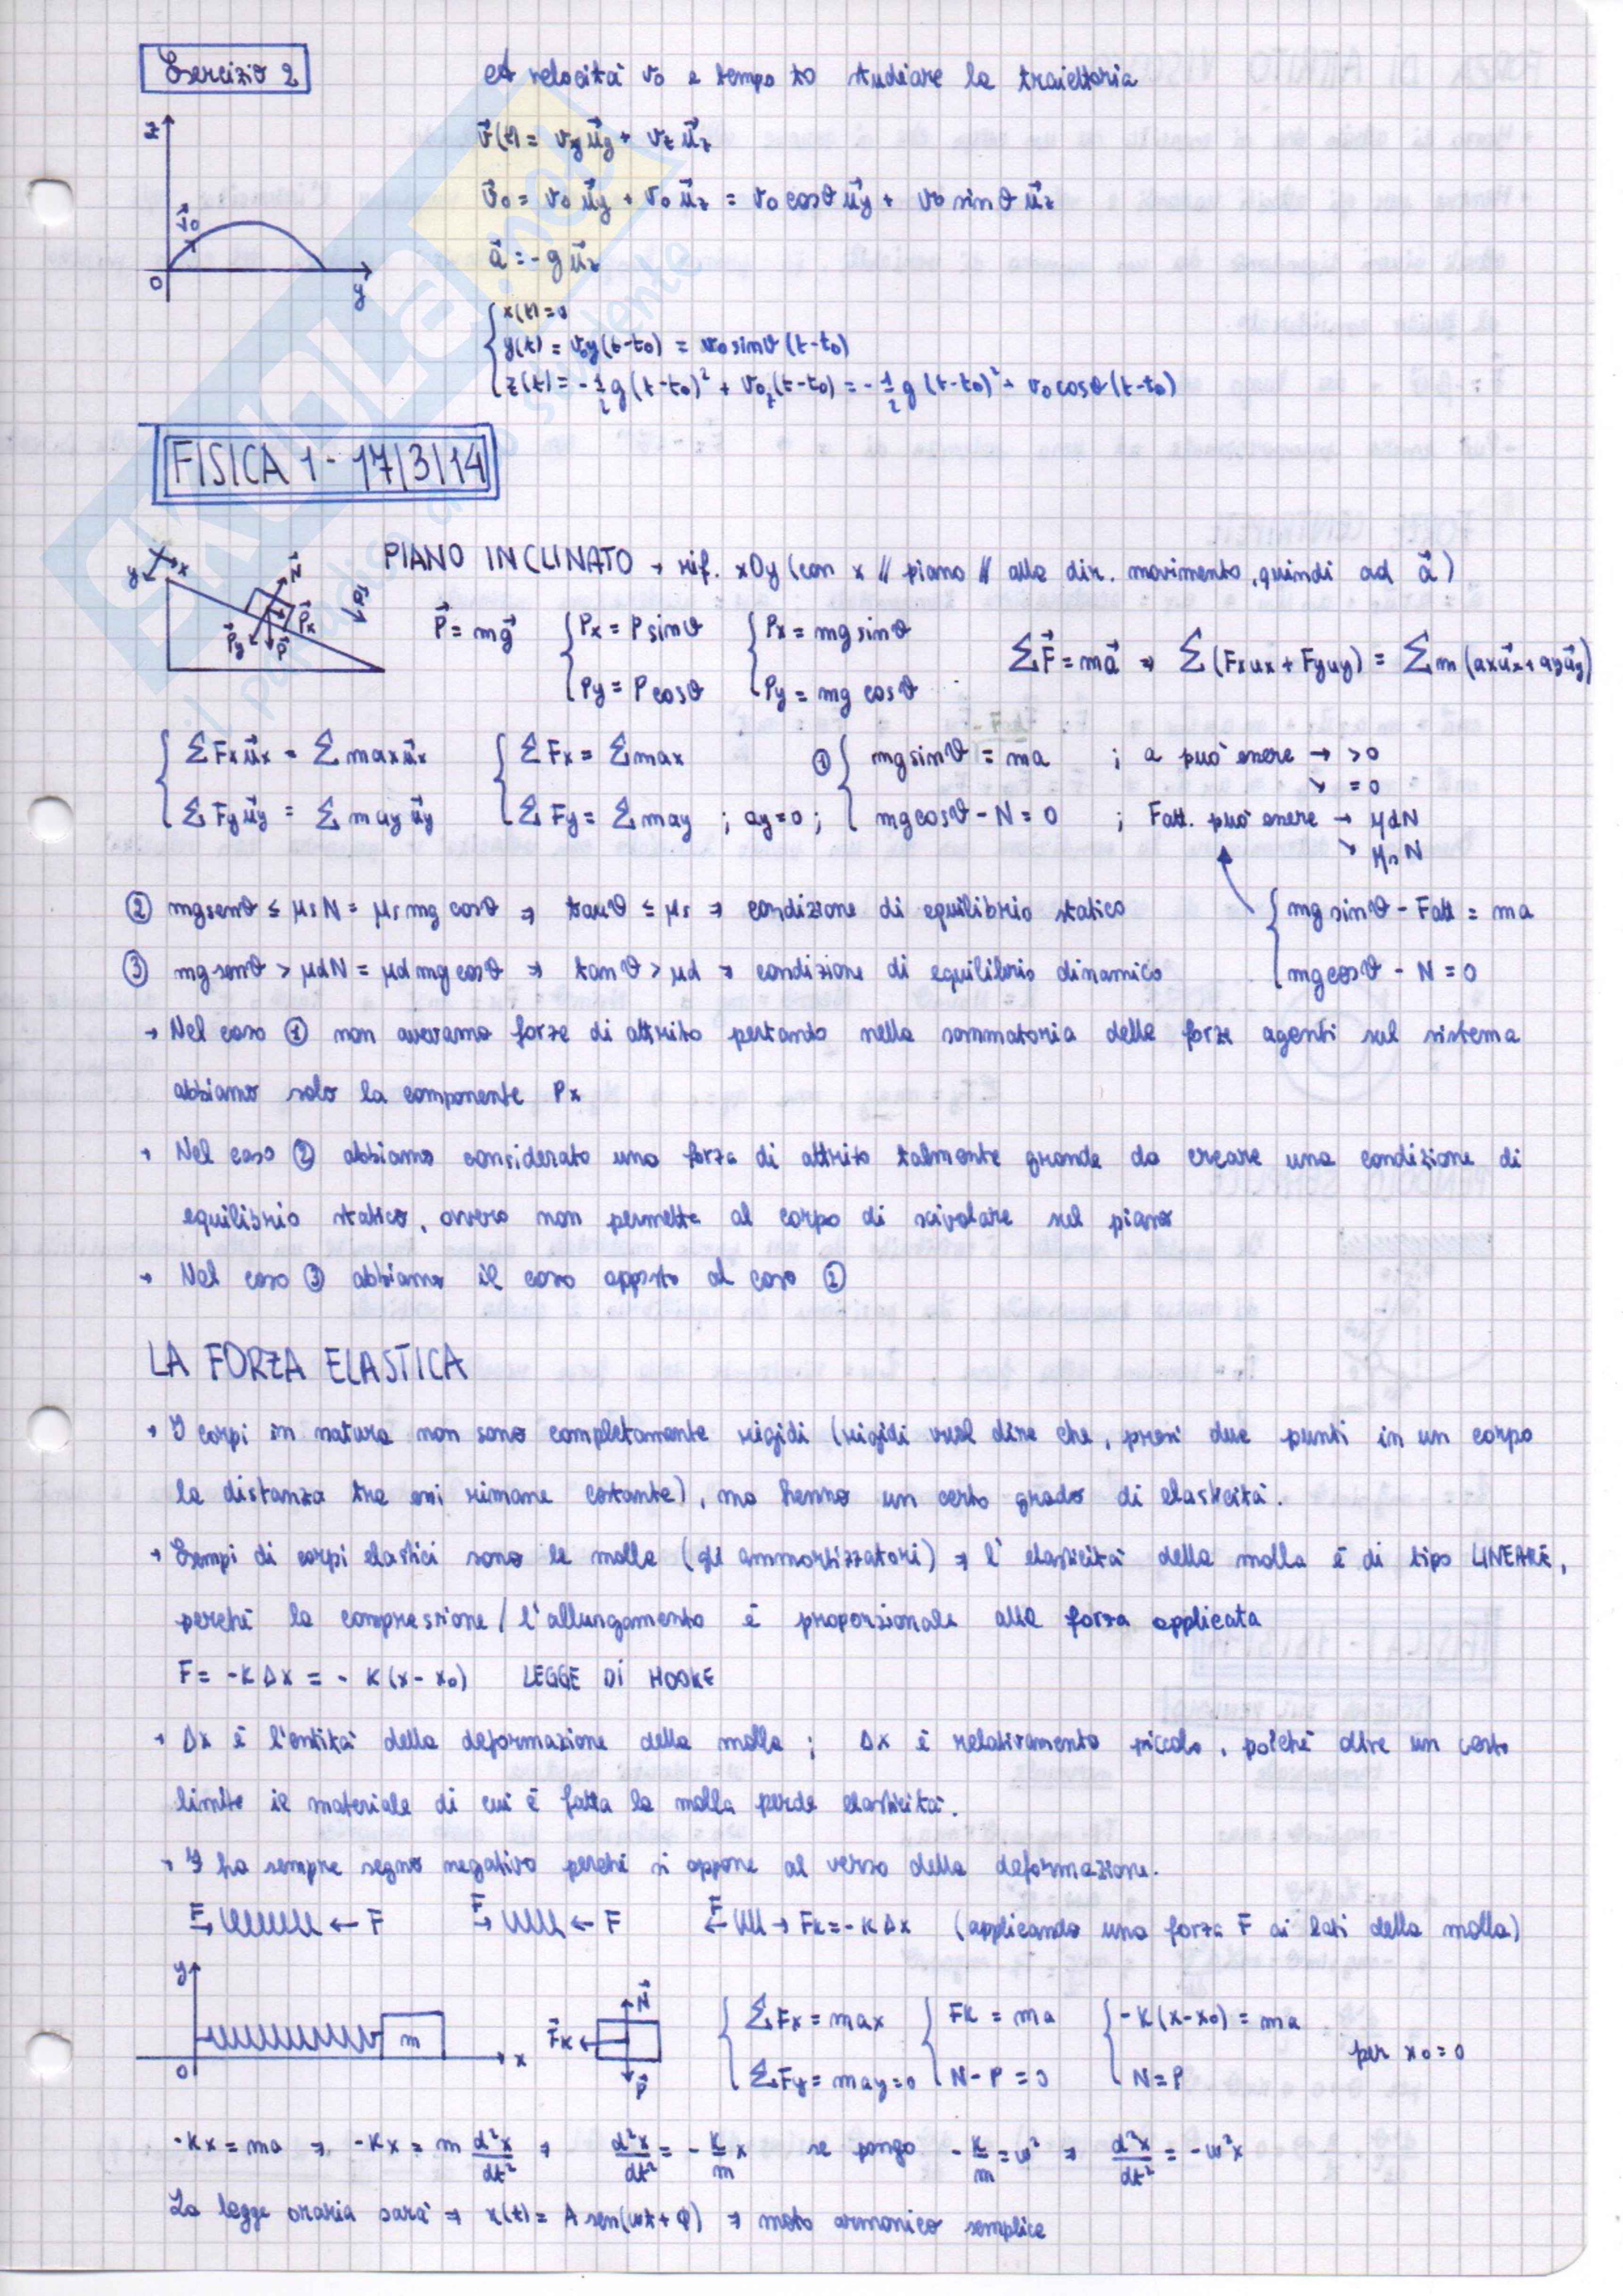 Esercizio 2
A velocità v₀ e tempo t0 studiare la traiettoria
z
v⃗(t) = vy u⃗y + vz u⃗z
v⃗₀
v⃗₀ = v₀ u⃗y + v₀ u⃗z = v₀ cosθ u⃗y + v₀ sinθ u⃗z
a⃗ = -g u⃗z
O y
x(t) = 0
y(t) = v₀y(t-t₀) = v₀ sinθ (t-t₀)
z(t) = -1/2 g (t-t₀)² + v₀z(t-t₀) = -1/2 g (t-t₀)² + v₀ cosθ (t-t₀)
FISICA 1 - 17/3/14
PIANO INCLINATO → rif. xOy (con x // piano // alla dir. movimento, quindi ad a⃗)
y x N⃗ P⃗x P⃗y P⃗
P⃗ = mg⃗ { Px = P sinθ { Px = mg sinθ
ΣF⃗ = ma⃗ ⇒ Σ(Fx ux + Fy uy) = Σm(ax u⃗x + ay u⃗y)
Py = P cosθ Py = mg cosθ
ΣFx u⃗x = Σ max u⃗x { ΣFx = Σmax ① { mg sinθ = ma ; a può essere → >0
↘ = 0
ΣFy u⃗y = Σ may u⃗y ΣFy = Σmay ; ay=0 ; mg cosθ - N = 0 ; Fatt. può essere → μdN
↘ μsN
② mg senθ ≤ μsN = μs mg cosθ ⇒ tanθ ≤ μs ⇒ condizione di equilibrio statico { mg sinθ - Fatt = ma
③ mg senθ > μdN = μd mg cosθ ⇒ tanθ > μd ⇒ condizione di equilibrio dinamico mg cosθ - N = 0
→ Nel caso ① non avevamo forze di attrito pertando nella sommatoria delle forze agenti sul sistema
abbiamo solo la componente Px
→ Nel caso ② abbiamo considerato una forza di attrito talmente grande da creare una condizione di
equilibrio statico, ovvero non permette al corpo di scivolare sul piano
→ Nel caso ③ abbiamo il caso opposto al caso ②
LA FORZA ELASTICA
→ I corpi in natura non sono completamente rigidi (rigidi vuol dire che, presi due punti in un corpo
la distanza tra essi rimane costante), ma hanno un certo grado di elasticità.
→ Esempi di corpi elastici sono le molle (gli ammortizzatori) ⇒ l'elasticità della molla è di tipo LINEARE,
perché la compressione / l'allungamento è proporzionale alla forza applicata
F = -KΔx = - K(x-x₀) LEGGE DI HOOKE
→ Δx è l'entità della deformazione della molla ; Δx è relativamente piccolo, poiché oltre un certo
limite il materiale di cui è fatta la molla perde elasticità.
→ F ha sempre segno negativo perché si oppone al verso della deformazione.
F → ← F F → ← F F ← → Fk = -KΔx (applicando una forza F ai lati della molla)
y
m
O x
F⃗k N⃗ P⃗
{ ΣFx = max { Fk = ma { -K(x-x₀) = ma
per x₀ = 0
ΣFy = may = 0 N-P = 0 N = P
-Kx = ma ⇒ -Kx = m d²x/dt² ⇒ d²x/dt² = - K/m x se pongo - K/m = ω² ⇒ d²x/dt² = -ω²x
La legge oraria sarà ⇒ x(t) = A sen(ωt + φ) ⇒ moto armonico semplice
SKUOLA.net
il paradiso dello studente